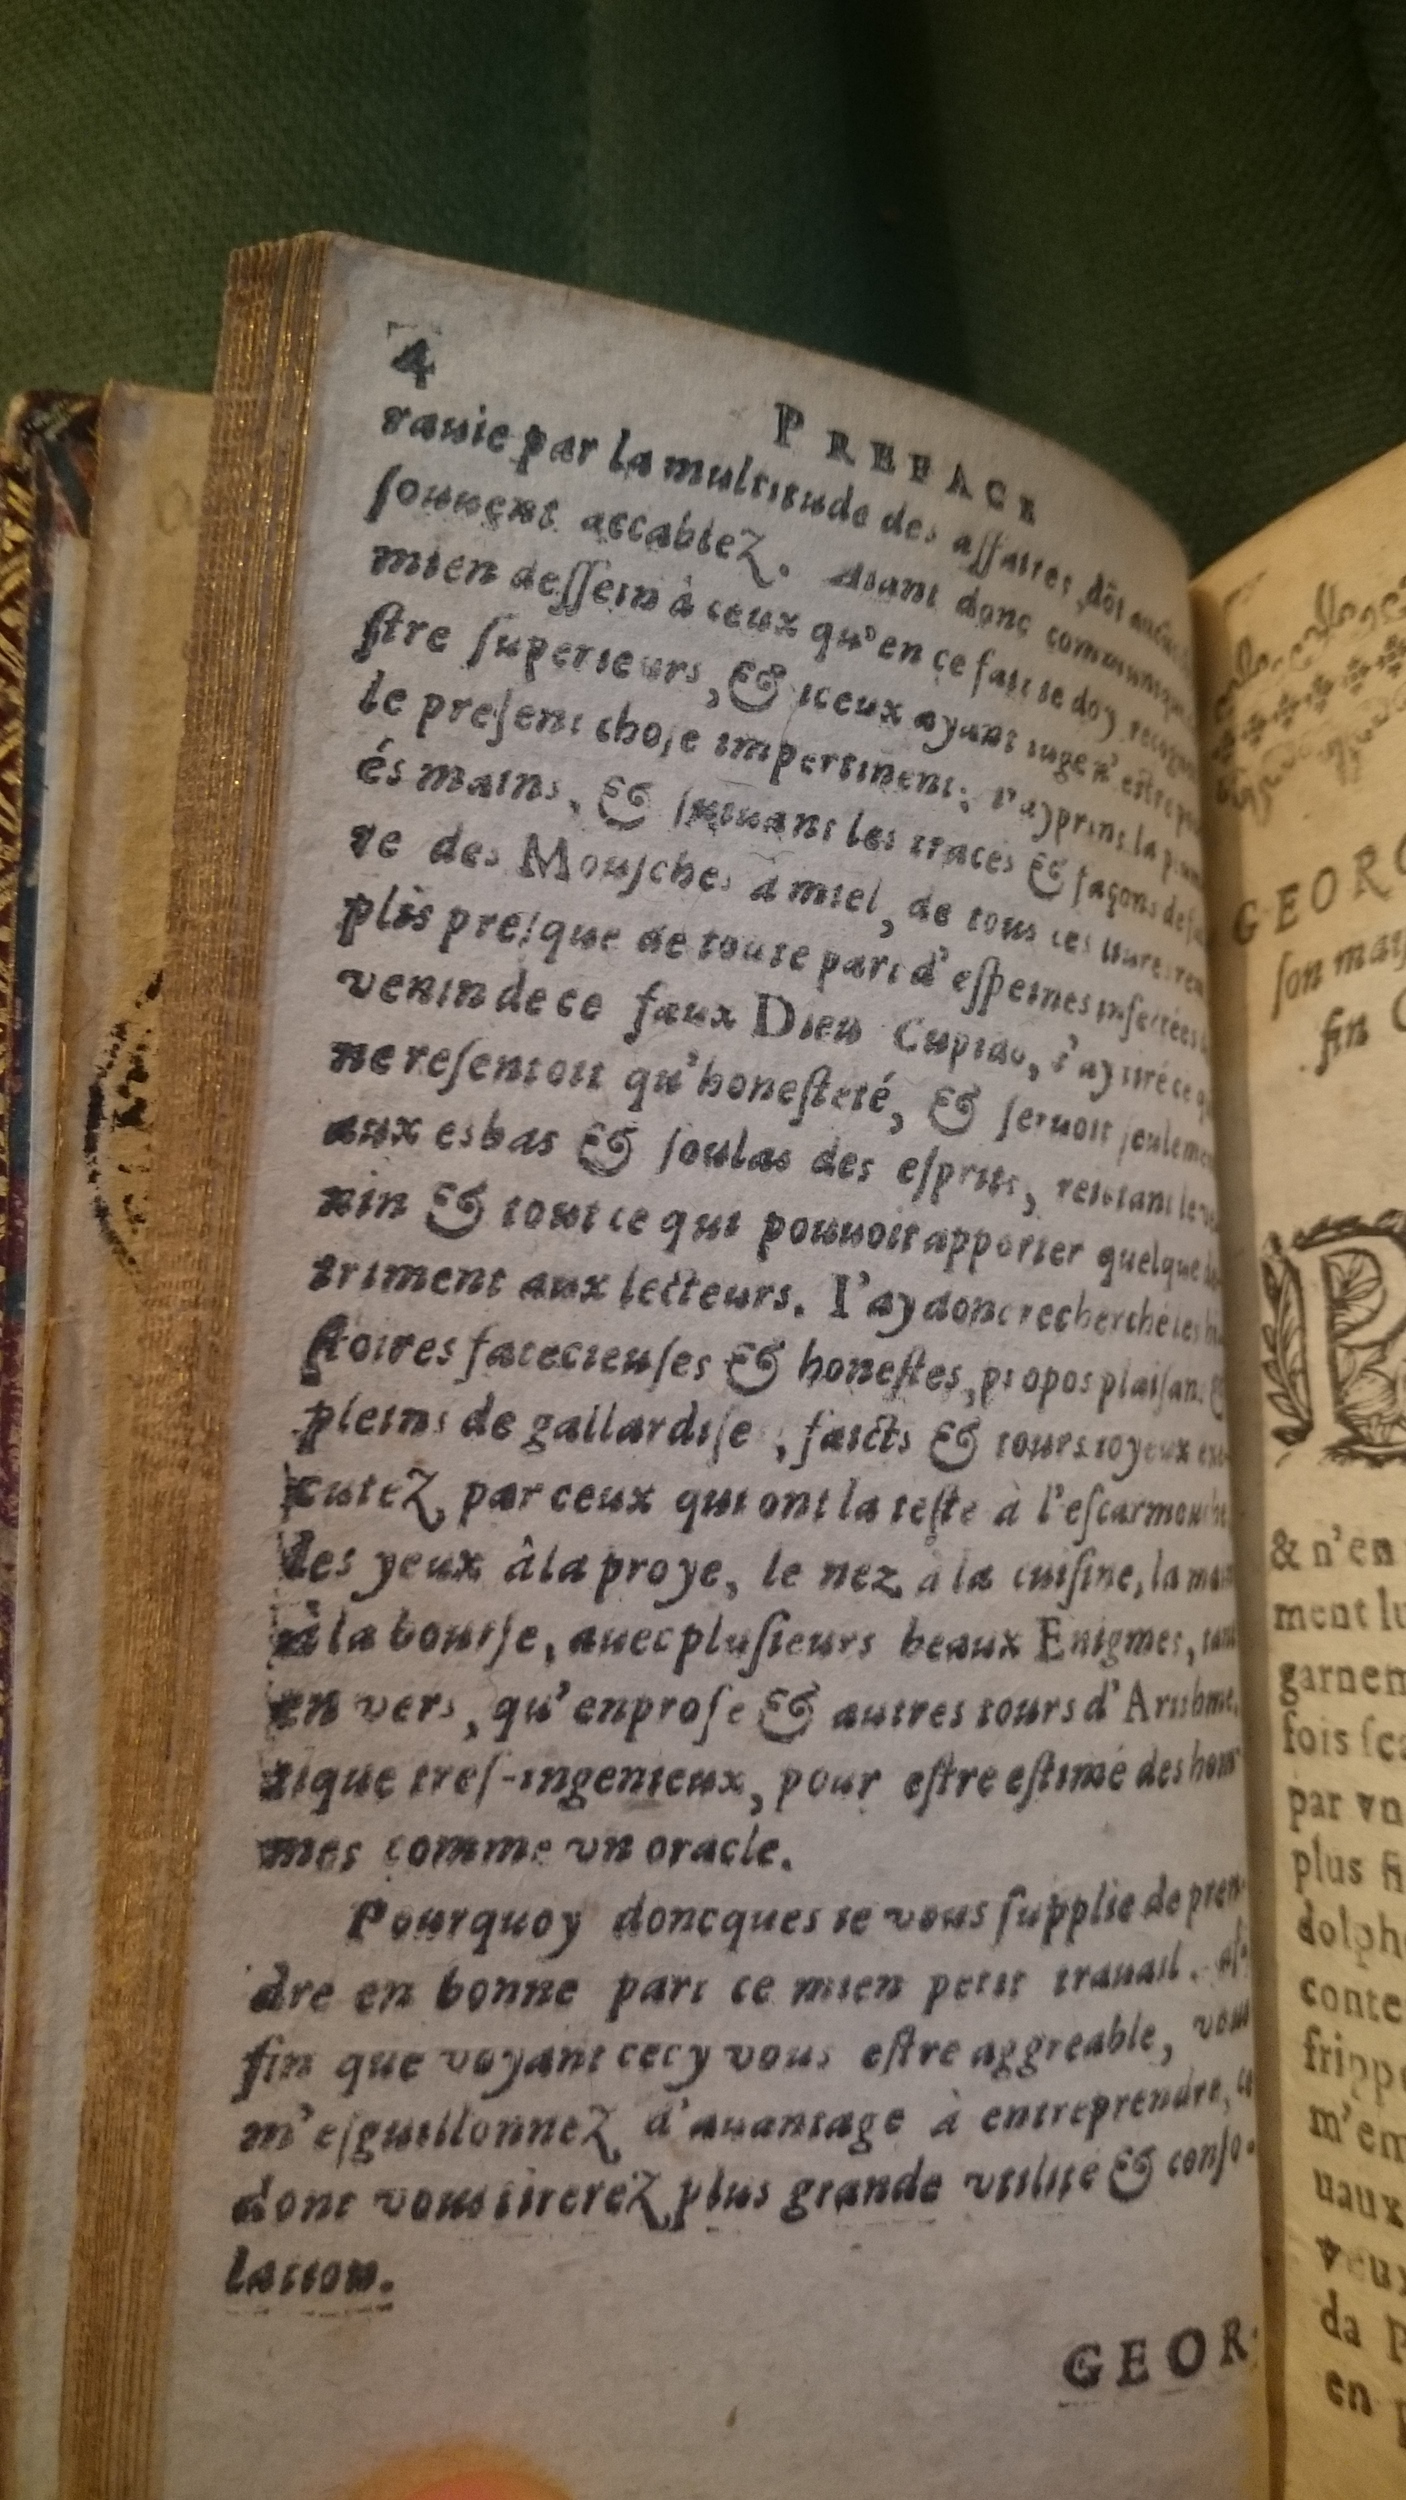 4
PREFACE
rauie par la multitude des affaires, dõt
souuent accablez. Aiant donc communiqué
mien dessein à ceux qu'en ce fait ie doy
stre superieurs, & iceux ayant iugé n'estre
le present chose impertinent: i'ay prins la
és mains, & suiuant les traces & façons de
re des Mousches à miel, de tous ces liures
plis presque de toute part d'espeines infectées
venin de ce faux Dieu Cupido, i'ay tiré ce
ne resentoit qu'honesteté, & seruoit
aux esbas & soulas des esprits, reiettant le
nin & tout ce qui pouuoit apporter quelque
triment aux lecteurs. I'ay donc recherché les
stoires facecieuses & honestes, propos plaisans
pleins de gaillardise, faicts & tours ioyeux
cutez par ceux qui ont la teste à l'escarmouche
les yeux â la proye, le nez à la cuisine, la main
à la bourse, auec plusieurs beaux Enigmes, tant
en vers, qu'en prose & autres tours d'Arithme,
tique tres-ingenieux, pour estre estimé des hom
mes comme vn oracle.
Pourquoy doncques ie vous supplie de pren-
dre en bonne part ce mien petit trauail. af-
fin que voyant cecy vous estre aggreable, vous
m'esguillonnez d'auantage à entreprendre, ce
dont vous tirerez plus grande vtilité & conso-
lation.
GEOR-
GEOR
son
fin
& n'en
ment
garnem
fois
par vn
plus
dolph
conte
fripp
m'em
uaux
veux
da
en